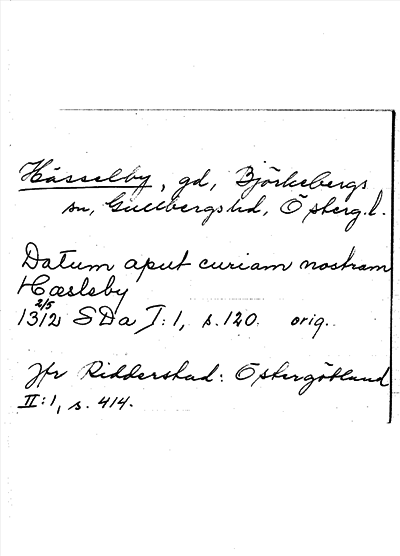 Hässelby, gd, Björkebergs
sn, Gullbergs hd, Österg.l.
Datum aput curiam nostram
Hæsleby
2/5
1312 SDa I:1, s. 120. orig.
Jfr Ridderstad: Östergötland
II:1, s. 414.